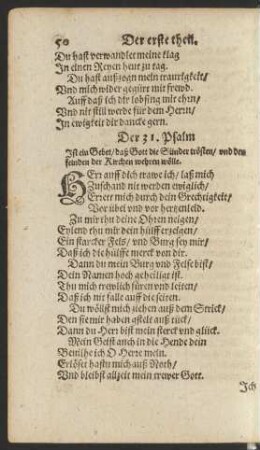 50 Der erste theil.
Du hast verwandlet meine klag
In einen Reyen heut zu tag.
Du hast außzogn mein traurigkeit/
Vnd mich wider gegürt mit frewd.
Auff daß ich dir lobsing mit ehrn/
Vnd nit still werde für dem Herrn/
In ewigkeit dir dancke gern.
Der 31. Psalm
Ist ein Gebet/ daß Gott die Sünder trösten/ vnd den
feinden der Kirchen wehren wölle.
HErr auff dich trawe ich/ laß mich
Zuschand nit werden ewiglich/
Errett mich durch dein Grechtigkeit/
Vor übel vnd vor hergenleid.
Zu mir thu deine Ohren neigen/
Eylend thu mir dein hülff erzeigen/
Ein starcker Fels/ vnd Burg sey mir/
Daß ich die hülffe merck von dir.
Dann du mein Burg vnd Felse bist/
Dein Namen hoch geheiliat ist.
Thu mich trewlich füren vnd leiten/
Daß ich nit falle auff die seiten.
Du wöllst mich ziehen auß dem Strick/
Den sie mir haben gstelt auß tück/
Dann du Herr bist mein sterck vnd glück.
Mein Geist auch in die Hende dein
Befilhe ich O Herre mein.
Erlöset hastu mich auß Noth/
Vnd bleibst allzeit mein trewer Gott.
Ich